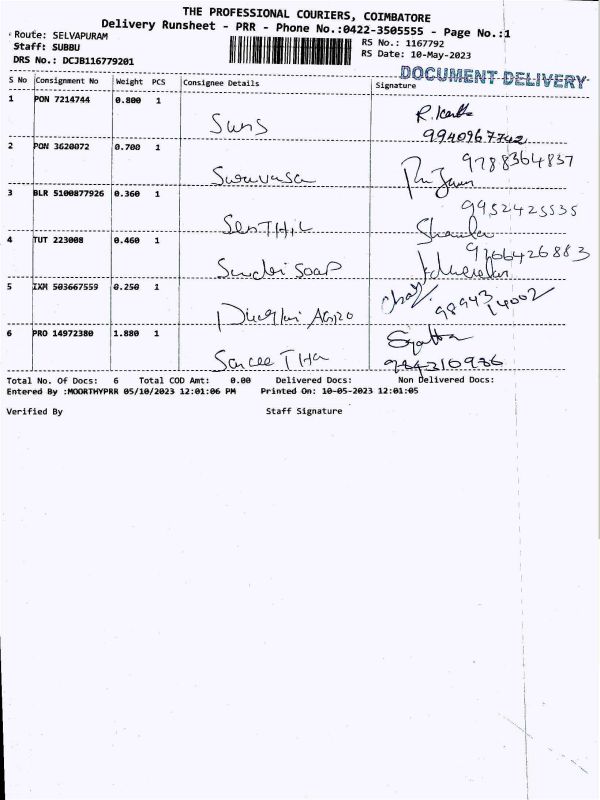 THE PROFESSIONAL COURIERS, COIMBATORE
Delivery Runsheet - PRR - Phone No.:0422-3505555 - Page No.:1
Route: SELVAPURAM
RS No.: 1167792
Staff: SUBBU
RS Date: 10-May-2023
DRS No.: DCJB116779201
DOCUMENT DELIVERY
S No Consignment No Weight PCS Consignee Details Signature
1 PON 7214744 0.800 1
Suns
9940967742
2 PON 3620072 0.700 1
9788364837
3 BLR 5100877926 0.360 1
9952425535
SenTHIL
4 TUT 223008 0.460 1
9766426883
Soap
5 IXM 503667559 0.250 1
98943 14002
Agro
6 PRO 14972380 1.880 1
Total No. Of Docs: 6 Total COD Amt: 0.00 Delivered Docs: Non Delivered Docs:
Entered By :MOORTHYPRR 05/10/2023 12:01:06 PM Printed On: 10-05-2023 12:01:05
Verified By Staff Signature